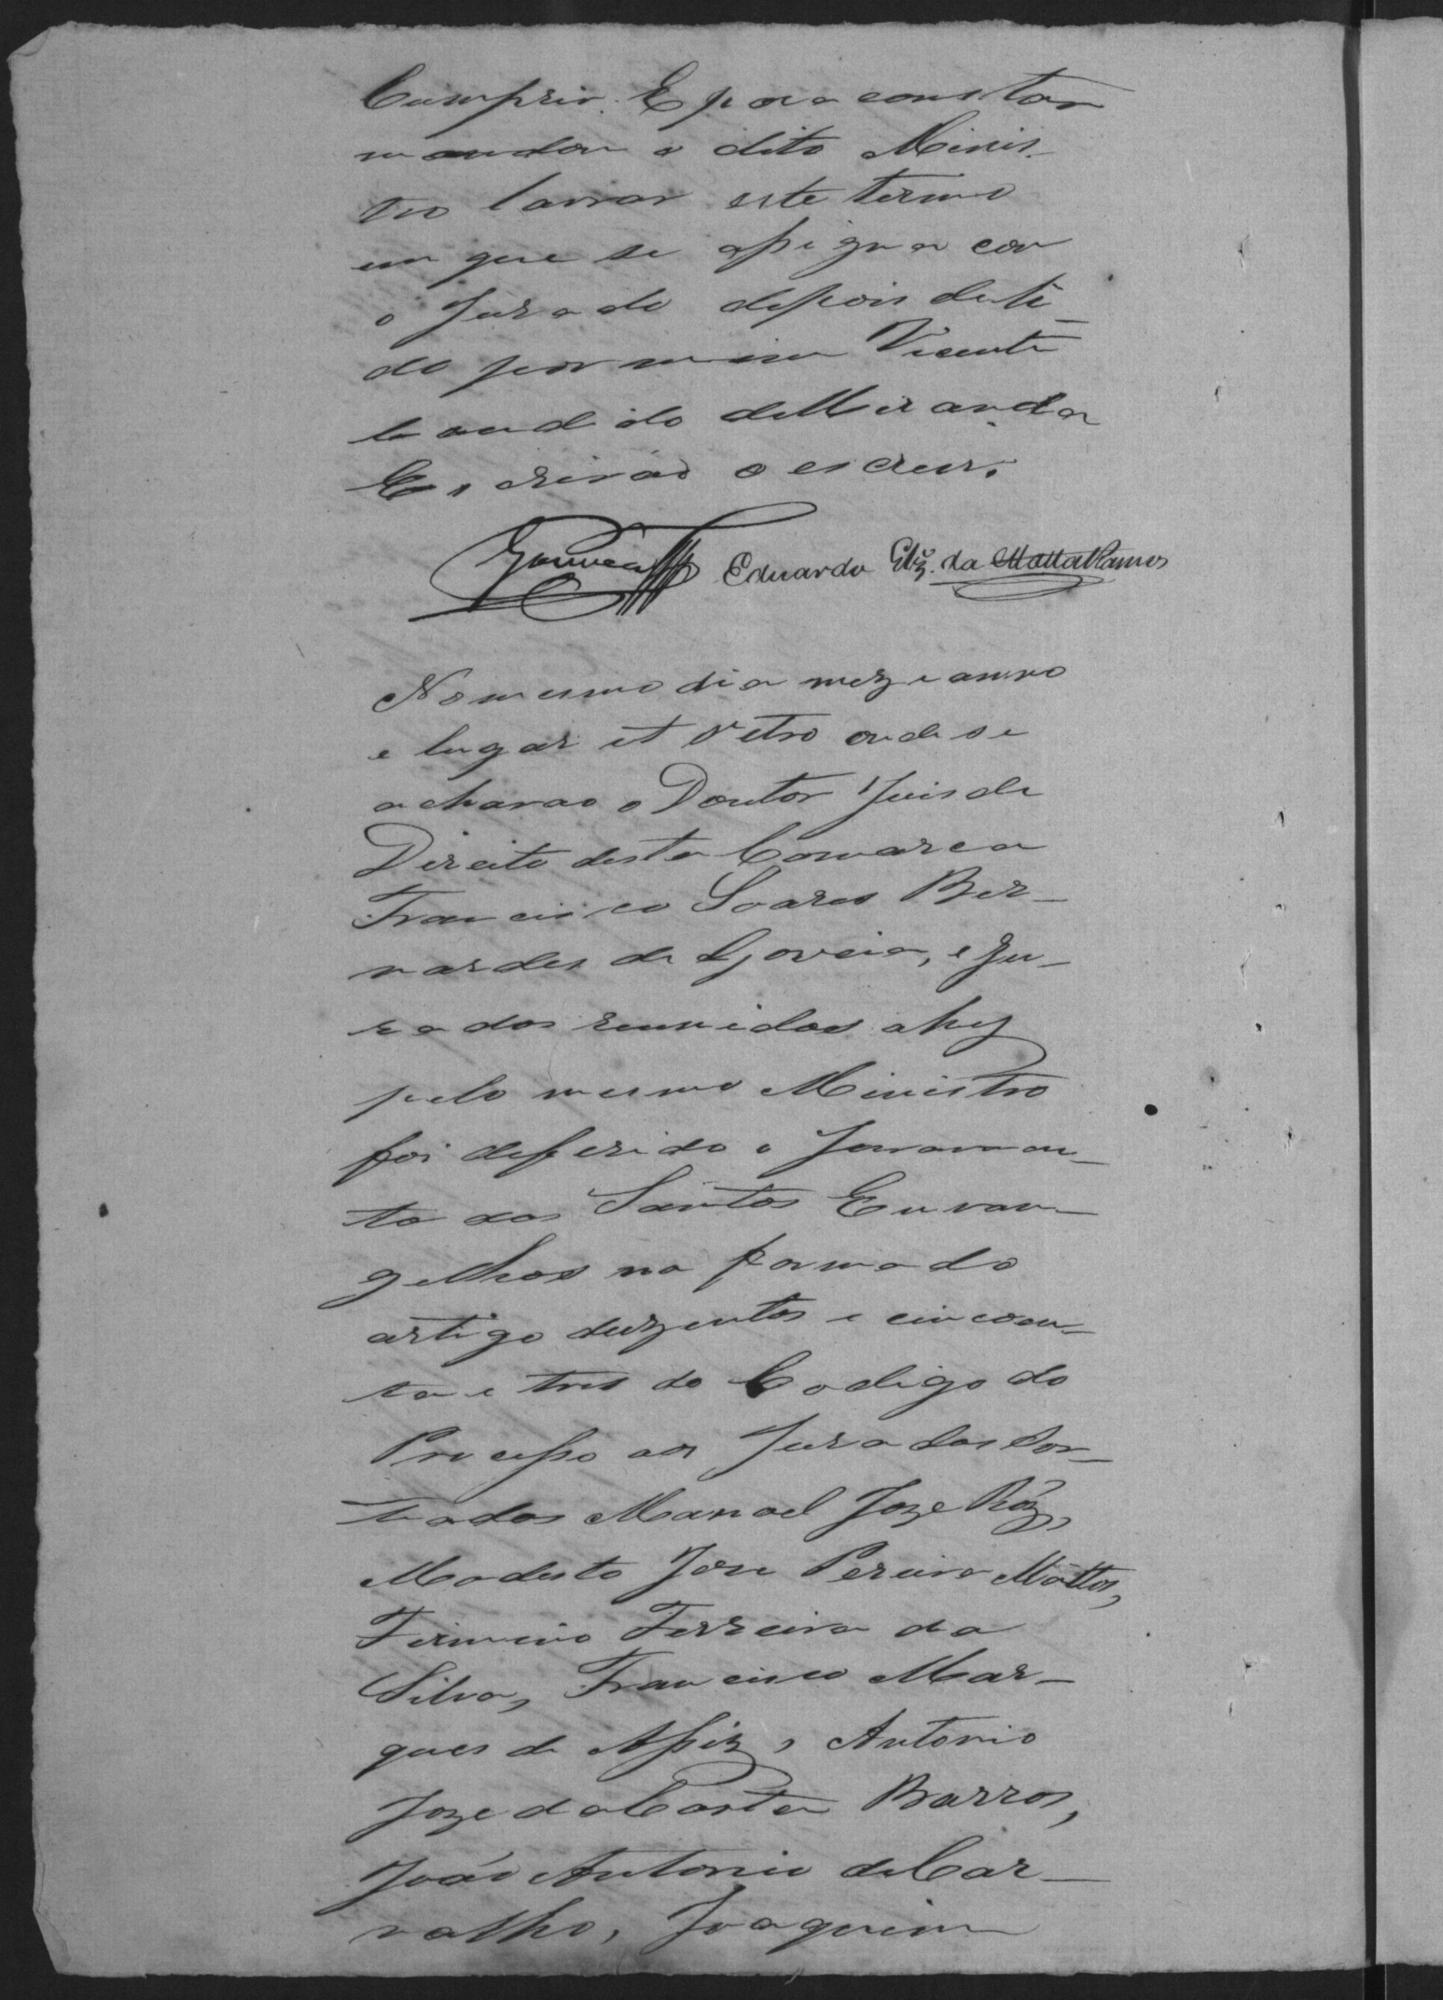 Cumprir. E para constar
mandou o dito Minis-
tro lavrar este termo
em que se assigna com
o Jurado depois de li-
do por mim Vicente
Candido de Miranda
Escrivão o escrevi.
Gouvea Eduardo da Motta Ramos
No mesmo dia mez e anno
e lugar et retro onde se
acharão o Doutor Juis de
Direito desta Comarca
Francisco Soares Ber-
nardes de Goveia, e Ju-
rados reunidos ahy
pelo mesmo Ministro
foi deferido o Juramen-
to dos Santos Euvan-
gelhos na forma do
artigo duzentos e cincoen-
ta e tres do Codigo do
Processo aos Jurados Sor-
teados Manoel Joze Róz,
Modesto Jose Pereira Mattos,
Firmino Ferreira da
Silva, Francisco Mar-
ques de Assiz, Antonio
Joze da Costa Barros,
João Antonio de Car-
valho, Joaquim